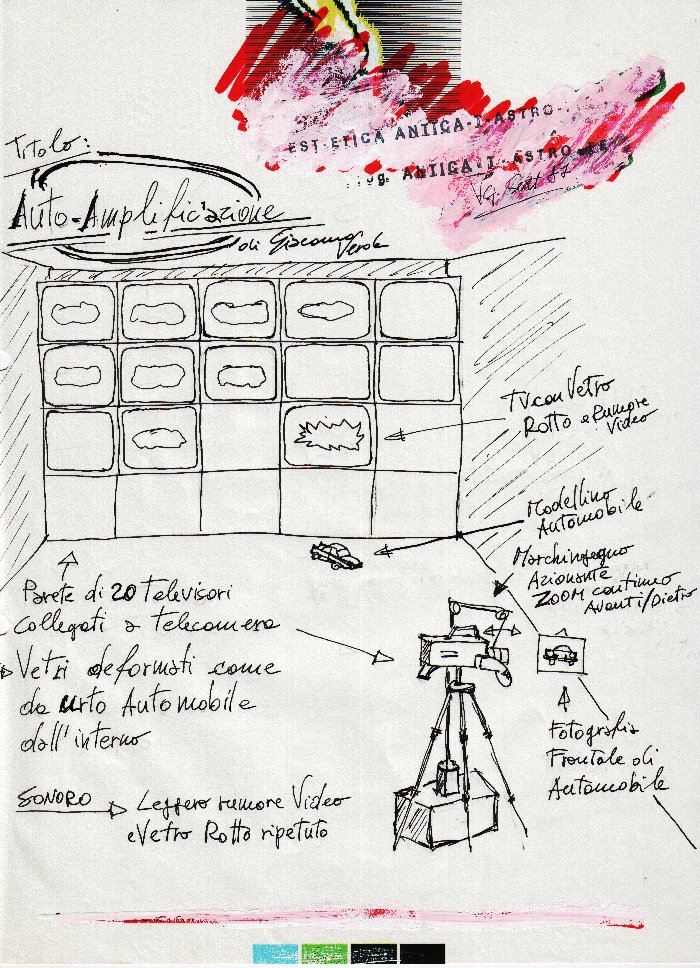 EST-ETICA ANTICA-I-ASTRO
ANTICA-I-ASTRO
Titolo:
Auto-Amplificazione
di Giacomo
Verde
TV con Vetro
Rotto e Rumore
Video
Modellino
Automobile
Marchingegno
Azionante
ZOOM continuo
Avanti/Dietro
Parete di 20 Televisori
Collegati a telecamera
Vetri deformati come
da urto Automobile
dall'interno
Fotografia
Frontale di
Automobile
SONORO
Leggero rumore Video
e Vetro Rotto ripetuto